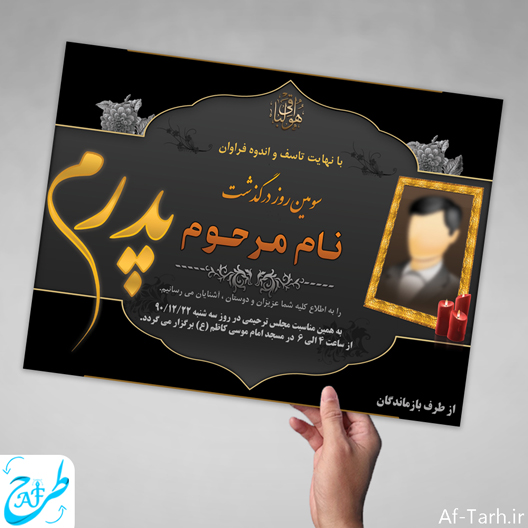 هوالباقی
با نهایت تاسف و اندوه فراوان
سومین روز درگذشت
نام مرحوم
پدرم
را به اطلاع کلیه شما عزیزان و دوستان ، اشنایان می رسانیم.
به همین مناسبت مجلس ترحیمی در روز سه شنبه ۹۰/۱۲/۲۲
از ساعت ۴ الی ۶ در مسجد امام موسی کاظم (ع) برگزار می گردد.
از طرف بازماندگان
طرح
AF
Af-Tarh.ir